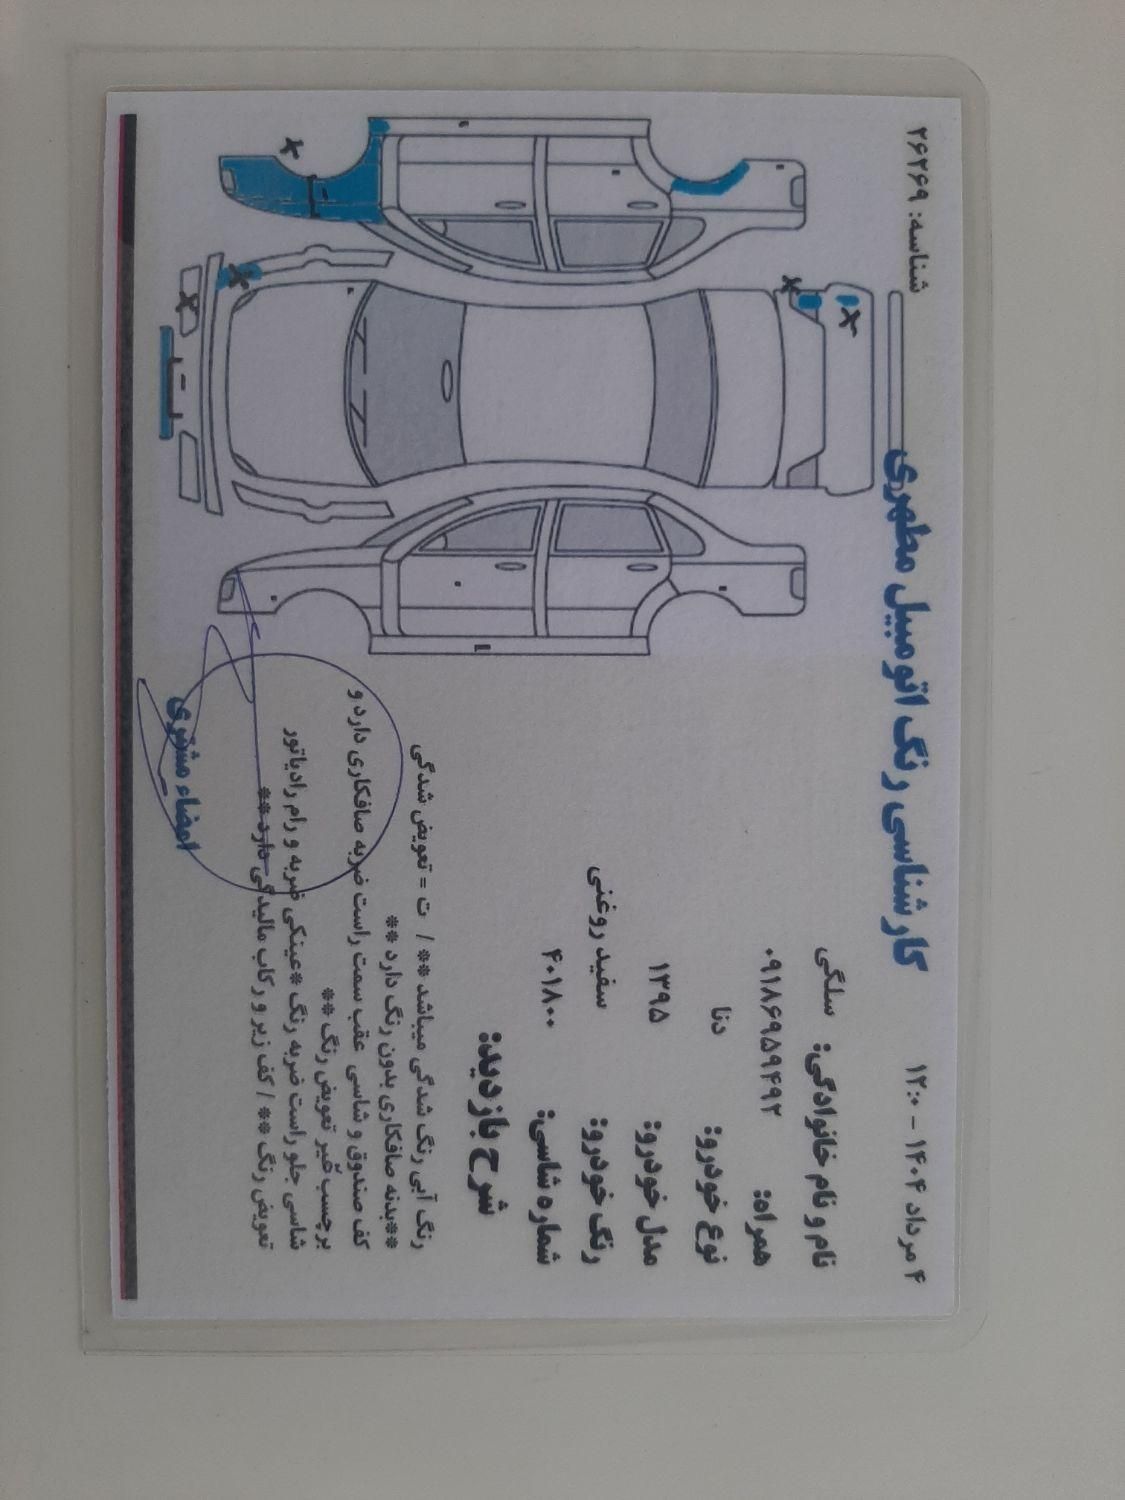 ۴ مرداد ۱۴۰۴ - ۱۲:۰
کارشناسی رنگ اتومبیل مطهری
شناسه: ۲۶۲۶۹
نام و نام خانوادگی: سلگی
همراه: ۰۹۱۸۶۹۵۹۴۹۲
نوع خودرو: دنا
مدل خودرو: ۱۳۹۵
رنگ خودرو: سفید روغنی
شماره شاسی: ۴۰۱۸۰۰
شرح بازدید:
رنگ آبی رنگ شدگی میباشد ** / ت = تعویض شدگی
**بدنه صافکاری بدون رنگ دارد **
کف صندوق و شاسی عقب سمت راست ضربه صافکاری دارد و
برچسب غیر تعویض رنگ **
شاسی جلو راست ضربه رنگ *عینکی ضربه و رام رادیاتور
تعویض رنگ ** / کف زیر و رکاب مالیدگی دارد **
امضاء مشتری